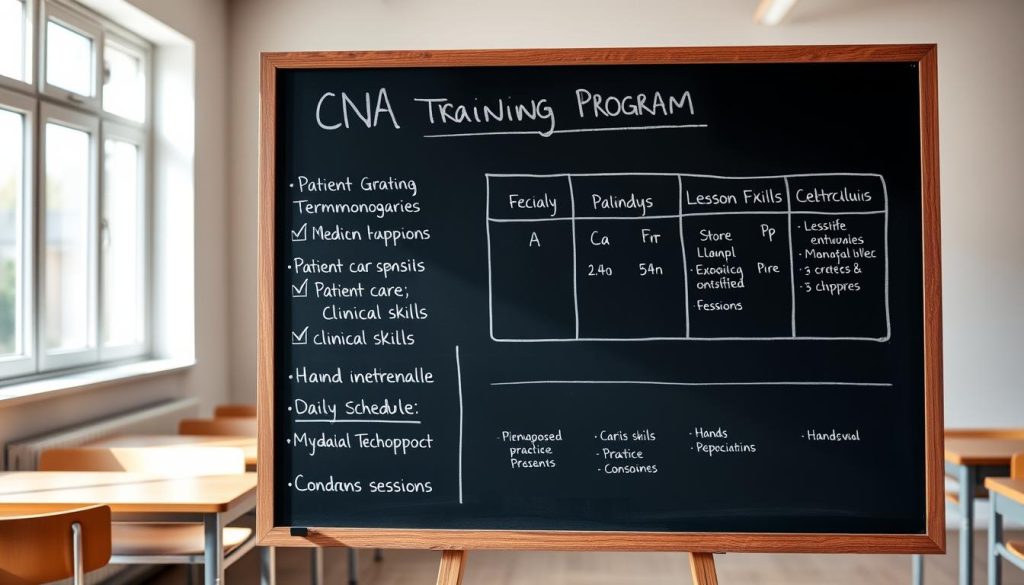 CNA Training Program
• Patient Grating
Termmonogaries
☑ Medicn tappions
• Patient car spnsils
☑ Patient care;
Clinical skills
☑ clinical skills
• Hand inetrenalle
• Daily Schedule:
• Mydaial Techoppoct
• Condrans sessions
Fecialy Palindys Lesson Fxills Cettrclluis
A
Ca Fir
24o 54n
Store Pp
Llampl
• Exooilcg Pire
ontsified
• Fessions
• Lesslife
entwuales
• 3 cretes &
• 3 chppres
• Piemaposed
practice
Presents
• Caris skils
• Pratice
• Consoines
• Hands
• Pepociatins
• Handsvial